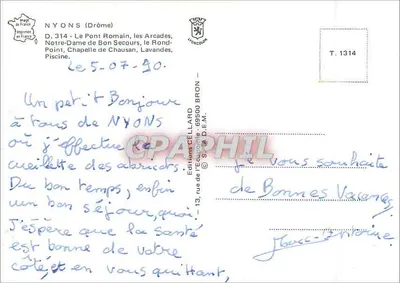 image de France
imprimé en France
NYONS (Drôme)
D. 314 - Le Pont Romain, les Arcades,
Notre-Dame de Bon Secours, le Rond-
Point, Chapelle de Chausan, Lavandes,
Piscine.
Le 5-07-90.
Un petit Bonjour
à tous de NYONS
où j'effectue la
cueillette des abricots.
Du bon temps, enfin
un bon séjour, quoi!
J'espère que la santé
est bonne de votre
côté, et en vous quittant,
Editions CELLARD
13, rue de l'Equipollente - 69500 BRON -
© S.P.A.D.E.M.
CARTPHIL
T. 1314
je vous souhaite
de Bonnes Vacances
Marc-Antoine.